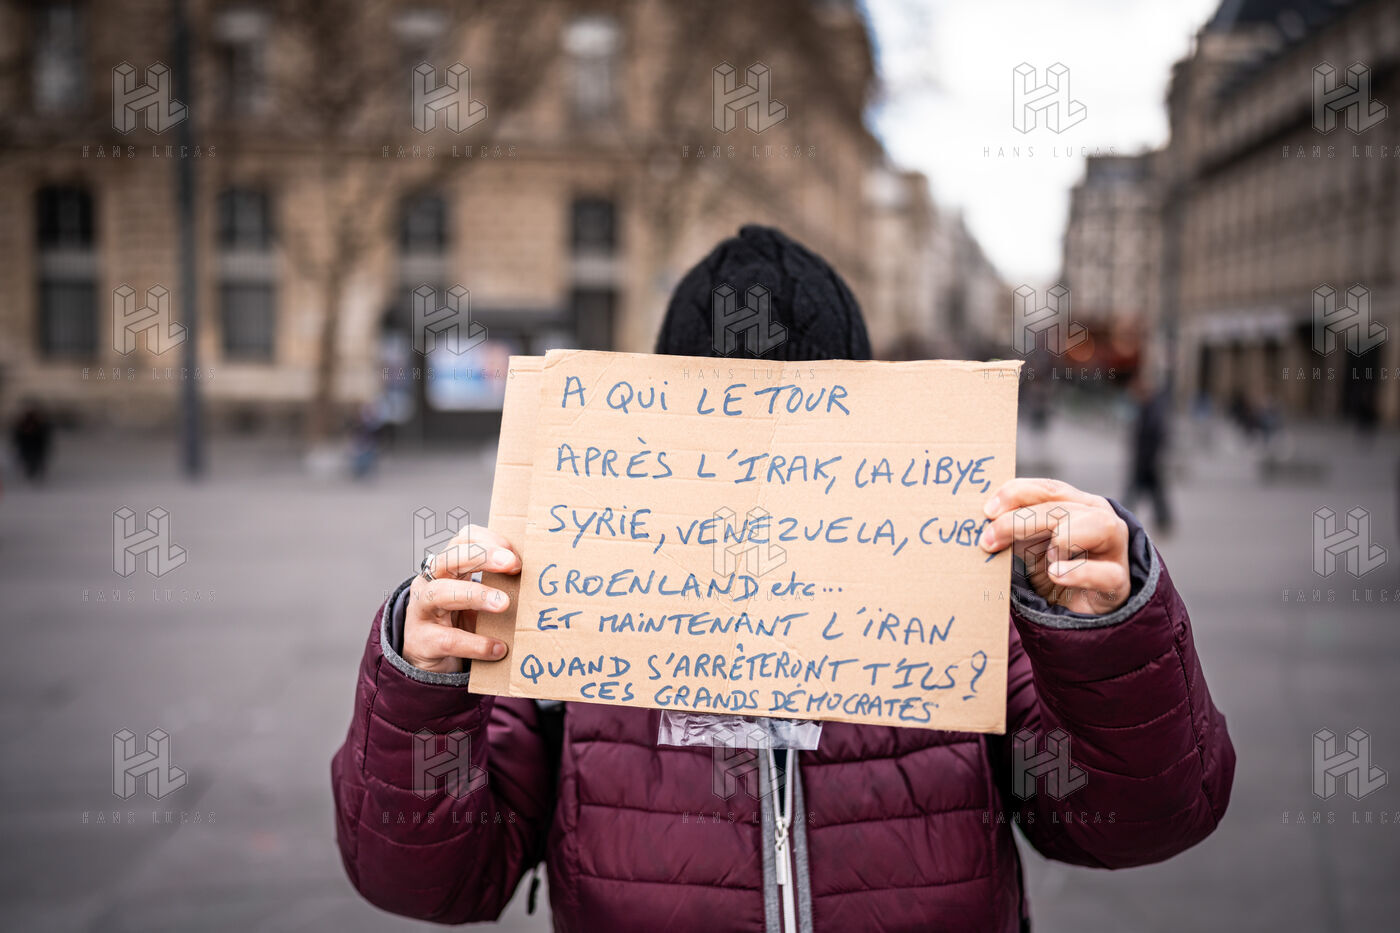 A QUI LE TOUR
APRÈS L'IRAK, LA LIBYE,
SYRIE, VENEZUELA, CUBA,
GROENLAND etc...
ET MAINTENANT L'IRAN
QUAND S'ARRÊTERONT T'ILS?
CES GRANDS DÉMOCRATES
HL
HANS LUCAS